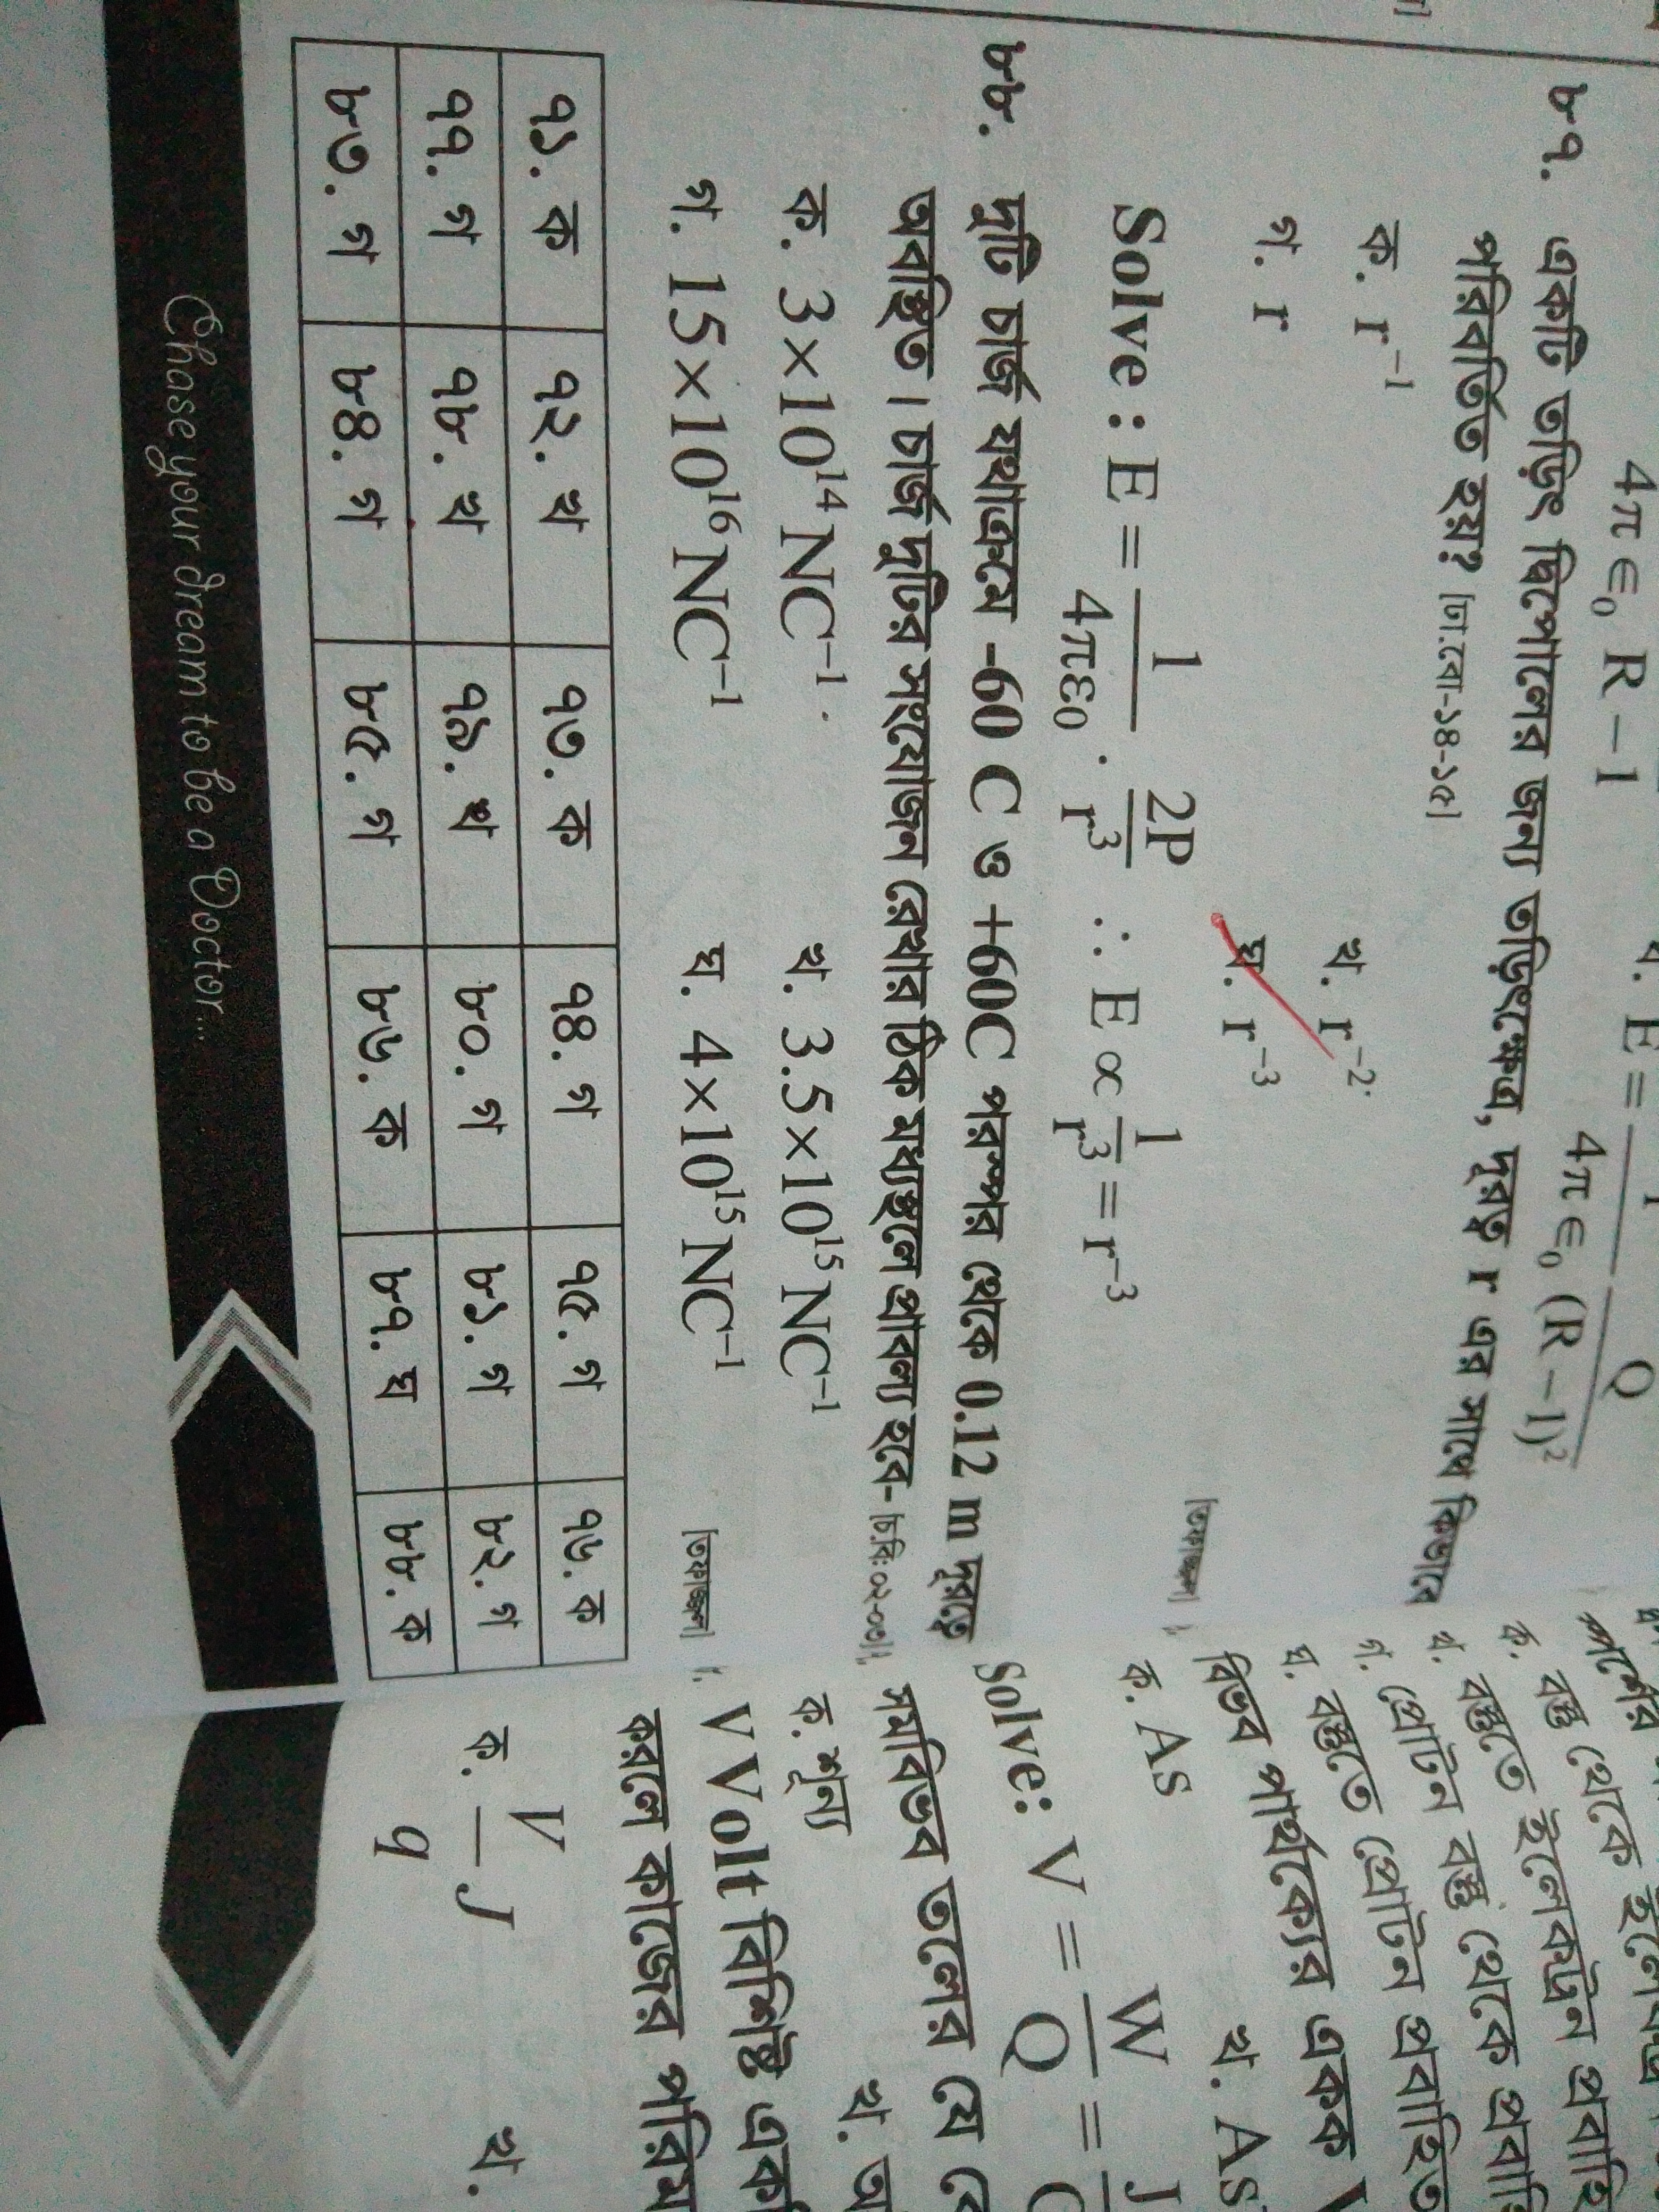 4π ∈₀ R – 1
4π ∈₀ (R – 1)²
৮৭. একটি তড়িৎ দ্বিপোলের জন্য তড়িৎক্ষেত্র, দূরত্ব r এর সাথে কিভাবে
পরিবর্তিত হয়? [ঢা.বো-১৪-১৫]
ক. r⁻¹
খ. r⁻²
গ. r
ঘ. r⁻³
[তফাজ্জল]
Solve : E = 1/4πε₀ · 2P/r³ ∴ E ∝ 1/r³ = r⁻³
৮৮. দুটি চার্জ যথাক্রমে -60 C ও +60C পরস্পর থেকে 0.12 m দূরত্বে
অবস্থিত। চার্জ দুটির সংযোজন রেখার ঠিক মধ্যস্থলে প্রাবল্য হবে- [চ.বি: ০২-০৩]
ক. 3×10¹⁴ NC⁻¹
খ. 3.5×10¹⁵ NC⁻¹
গ. 15×10¹⁶ NC⁻¹
ঘ. 4×10¹⁵ NC⁻¹
[তফাজ্জল]
৭১. ক ৭২. খ ৭৩. ক ৭৪. গ ৭৫. গ ৭৬. ক
৭৭. গ ৭৮. খ ৭৯. খ ৮০. গ ৮১. গ ৮২. গ
৮৩. গ ৮৪. গ ৮৫. গ ৮৬. ক ৮৭. ঘ ৮৮. ক
Chase your dream to be a Doctor...
ক. বস্তু থেকে ইলেকট্রন প্রবাহি
খ. বস্তুতে ইলেকট্রন প্রবাহি
গ. প্রোটন বস্তু থেকে প্রবাহি
ঘ. বস্তুতে প্রোটন প্রবাহিত
বিভব পার্থক্যের একক V
ক. As
খ. As
Solve: V = W/Q = J/C
সমবিভব তলের যে
ক. শূন্য
খ. অ
V Volt বিশিষ্ট এক
করলে কাজের পরিম
ক. V/q J
খ.